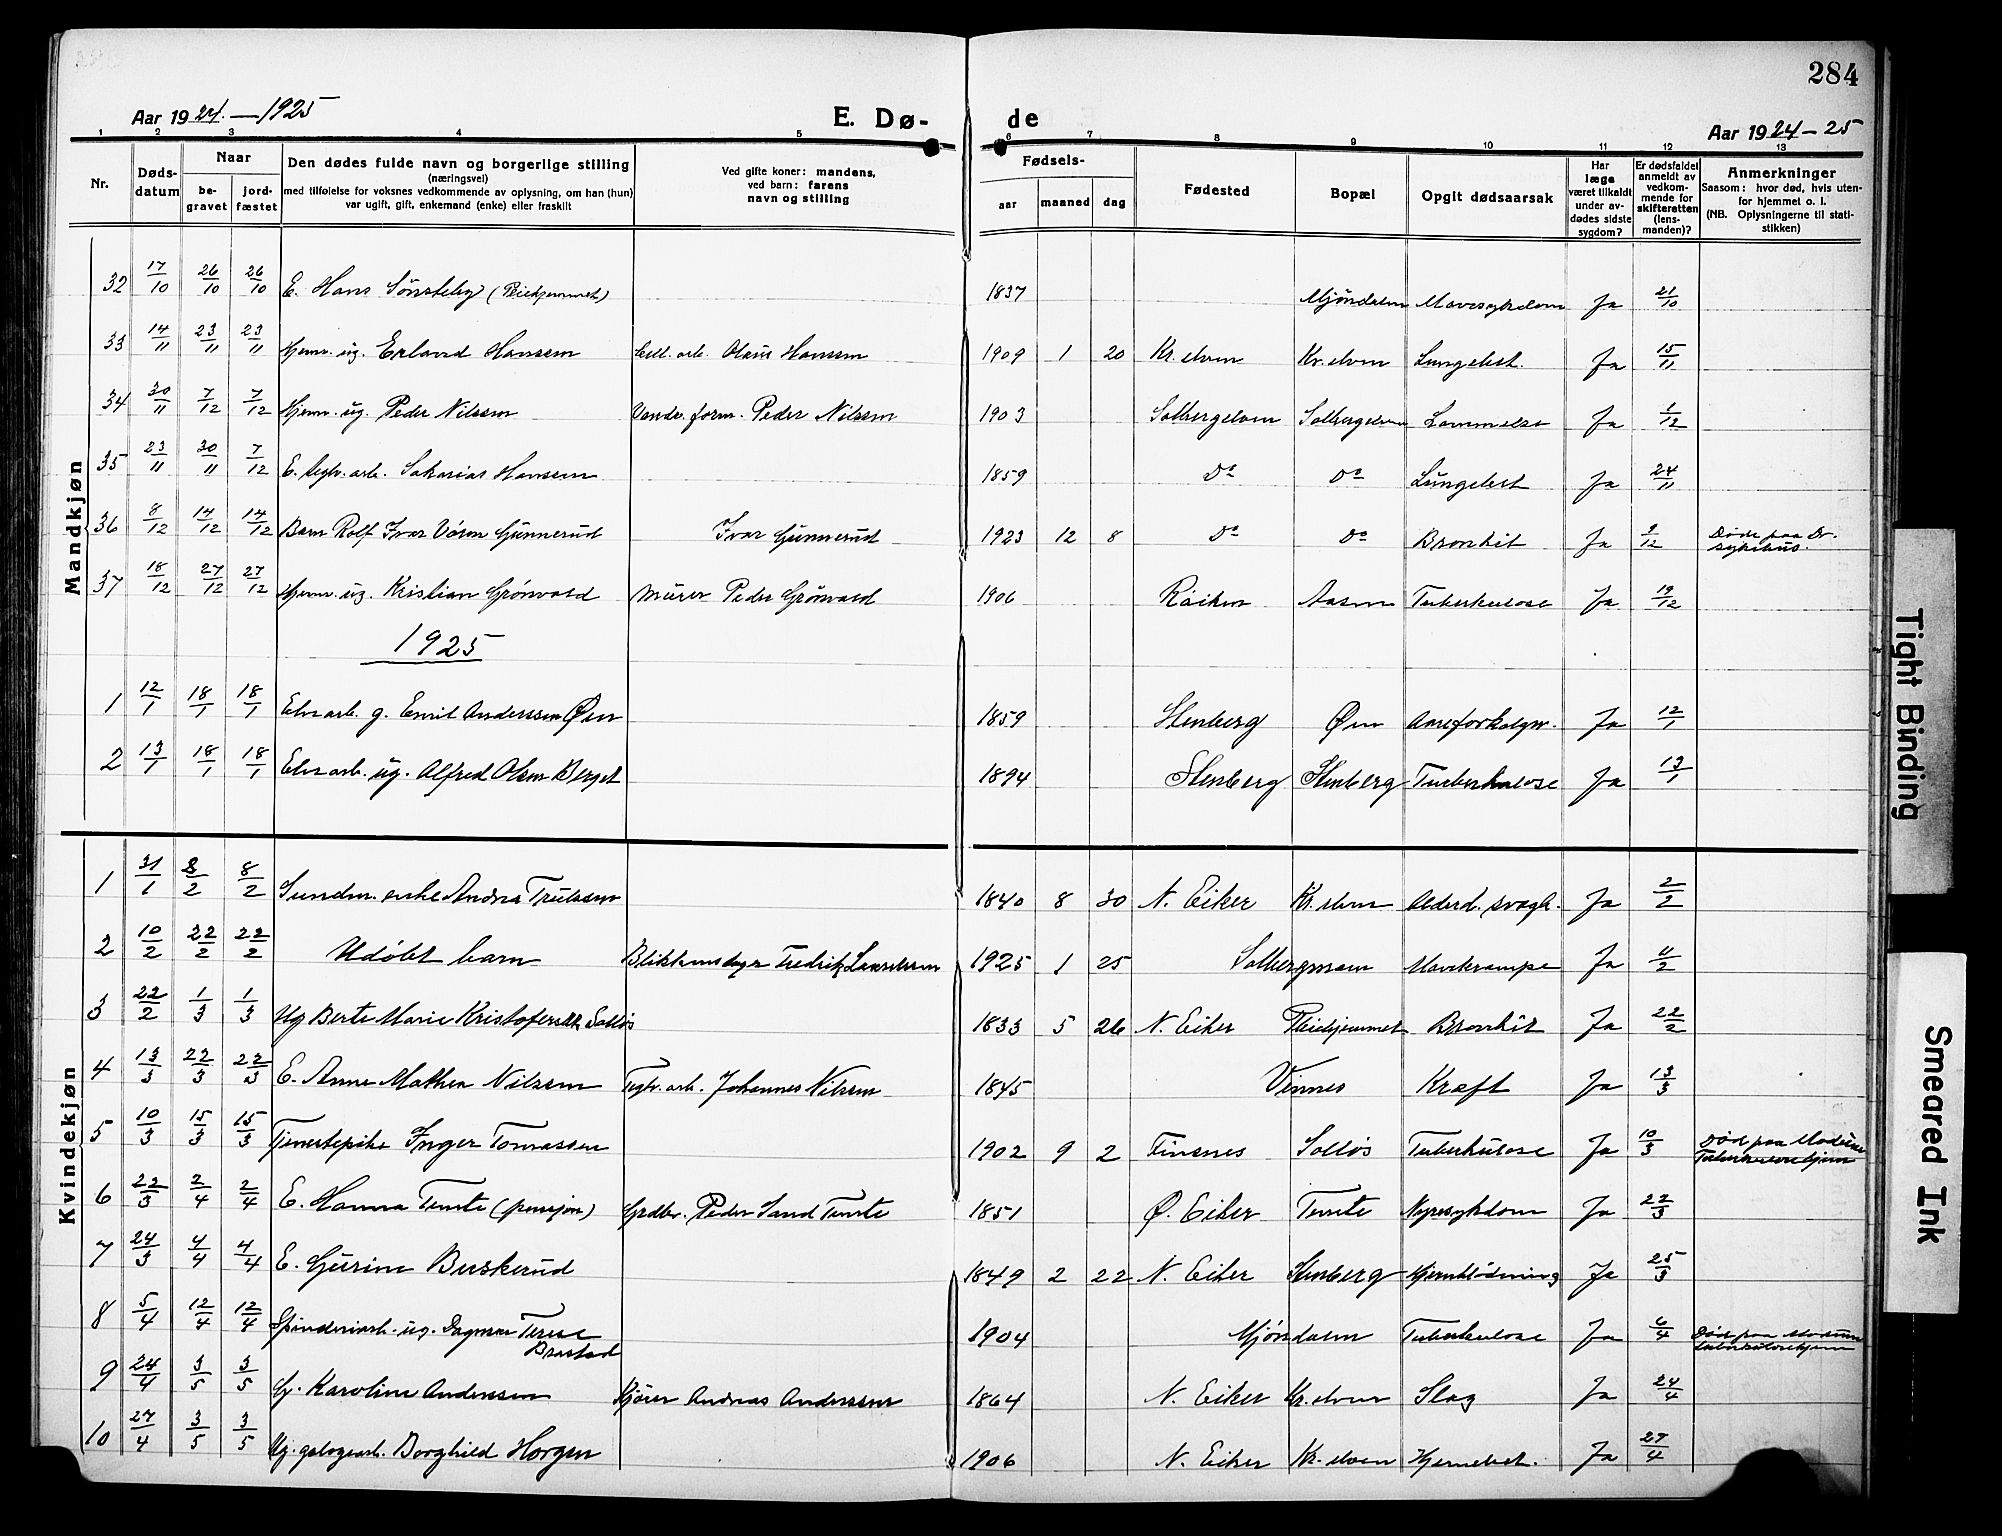 284
Aar 1924.—1925
E. Dø-
de
Aar 1924—25
1 2 3 4 5 6 7 8 9 10 11 12 13
Nr.
Døds-
datum
Naar
be-
gravet
jord-
fæstet
Den dødes fulde navn og borgerlige stilling
(næringsvei)
med tilføielse for voksnes vedkommende av oplysning, om han (hun)
var ugift, gift, enkemand (enke) eller fraskilt
Ved gifte koner: mandens,
ved barn: farens
navn og stilling
Fødsels-
aar
maaned
dag
Fødested
Bopæl
Opgit dødsaarsak
Har
læge
været tilkaldt
under av-
dødes sidste
sygdom?
Er dødsfaldet
anmeldt av
vedkom-
mende for
skifteretten
(lens-
manden)?
Anmerkninger
Saasom: hvor død, hvis uten-
for hjemmet o. l.
(NB. Oplysningerne til stati-
stikken)
Mandkjøn
32 17/10 26/10 26/10 E. Hans Sönsteby (Pleiehjemmet) 1837 Mjöndalen Mavesykdom Ja 21/10
33 14/11 23/11 23/11 Hjemv. ug. Erland Hanssen Cell. arb. Olaus Hanssen 1909 1 20 Kr. elven Kr. elven Lungebet. Ja 15/11
34 30/11 7/12 7/12 Hjemv. ug. Peder Nilssen Vands. form. Peder Nilssen 1903 Solbergelven Solbergelven Lammelse Ja 1/12
35 23/11 30/11 7/12 E. teglv. arb. Sakarias Hanssen 1859 Do Do Lungebet Ja 24/11
36 8/12 14/12 14/12 Barn Rolf Ivar Gunnerud Ivar Gunnerud 1923 12 8 Do Do Bronkit Ja 9/12 Døde paa Dr.
sykehus.
37 18/12 27/12 27/12 Hjemv. ug. Kristian Grönvold Murer Peder Grönvold 1906 Röiken Aasen Tuberkulose Ja 19/12
1925
1 12/1 18/1 18/1 Elvearb. g. Emil Anderssen Øen 1859 Stenberg Øen Aareforkalkn. Ja 12/1
2 13/1 18/1 18/1 Elvearb. ug. Alfred Olsen Berget 1894 Stenberg Stenberg Tuberkulose Ja 13/1
Kvindekjøn
1 31/1 8/2 8/2 enke Andrea Trulssen 1840 8 30 N. Eiker Kr. elven Alderd. svagh. Ja 2/2
2 10/2 22/2 22/2 Udöbt barn Fredrik 1925 1 25 Solbergmoen Mavekrampe Ja 11/2
3 22/2 1/3 1/3 Ug Berte Marie Kristofersdt. Solløs 1833 5 26 N. Eiker Pleiehjemmet Bronkit Ja 22/2
4 13/3 22/3 22/3 E. Anne Mathea Nilssen Teglv. arb. Johannes Nilssen 1845 Vinnes Kræft Ja 13/3
5 10/3 15/3 15/3 Tjenestepike Inger Tomassen 1902 9 2 Finsnes Solløs Tuberkulose Ja 10/3 Død paa Modum
Tuberkulosehjem
6 22/3 2/4 2/4 E. Hanna Temte (pensjon) Grdbr. Peder Sand Temte 1851 Ø. Eiker Temte Nyresykdom Ja 22/3
7 24/3 4/4 4/4 E. Gurine Buskerud 1849 2 22 N. Eiker Stenberg Hjerneblödning Ja 25/3
8 5/4 12/4 12/4 Spinderiarb. ug. Dagmar Terese
Brastad 1904 Mjöndalen Tuberkulose Ja 6/4 Død paa Modum
tuberkulosehjem
9 24/4 3/5 3/5 G. Karoline Anderssen Kjörer Andreas Anderssen 1864 N. Eiker Kr. elven Slag Ja 24/4
10 27/4 3/5 3/5 Ug. Borghild Horgen 1906 N. Eiker Kr. elven Hjernebet. Ja 27/4
Tight Binding
Smeared Ink